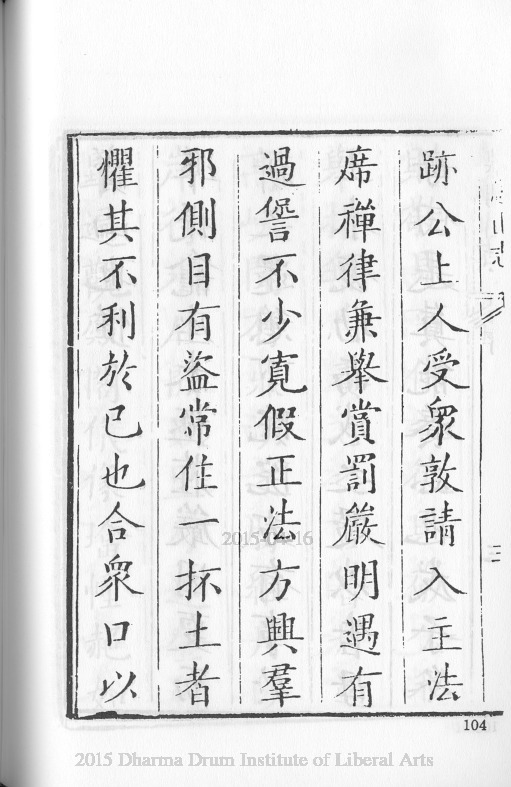 跡公上人受衆敦請入主法
席禪律兼舉賞罰嚴明遇有
過愆言不少寬假正法方興羣
邪側目有盜常住一抔土者
懼其不利於已也合衆口以
三
104
2015-04-16
2015 Dharma Drum Institute of Liberal Arts